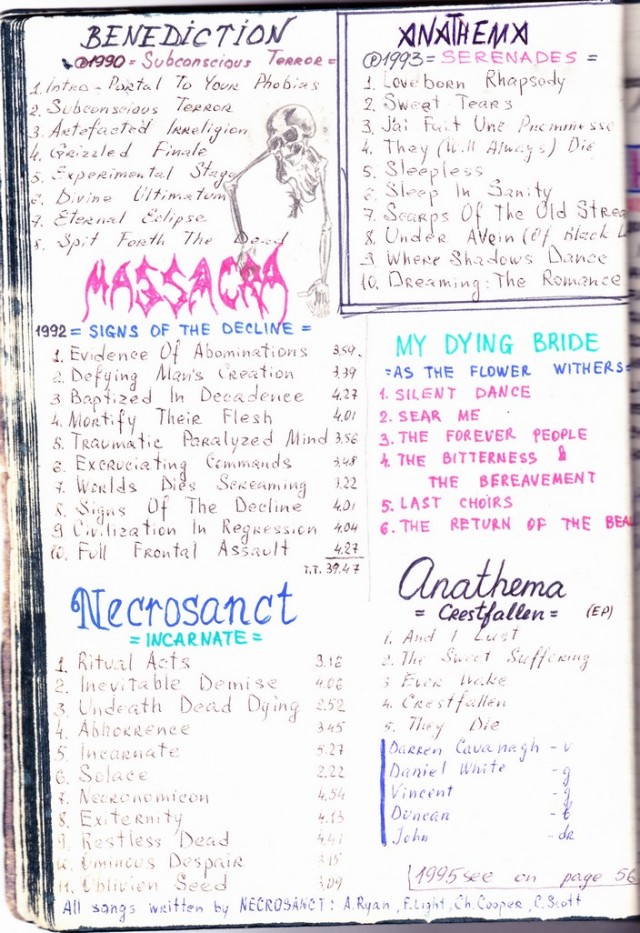 BENEDICTION
℗1990 = Subconscious Terror =
1. Intro - Portal To Your Phobias
2. Subconscious Terror
3. Artefacted Irreligion
4. Grizzled Finale
5. Experimental Stage
6. Divine Ultimatum
7. Eternal Eclipse
8. Spit Forth The Dead
ANATHEMA
℗1993 = SERENADES =
1. Lovelorn Rhapsody
2. Sweet Tears
3. J'ai Fait Une Prommesse
4. They (Will Always) Die
5. Sleepless
6. Sleep In Sanity
7. Scarps Of The Old Strea
8. Under A Vein (Of Black L
9. Where Shadows Dance
10. Dreaming: The Romance
MASSACRA
1992 = SIGNS OF THE DECLINE =
1. Evidence Of Abominations 3,59.
2. Defying Man's Creation 3,39
3 Baptized In Decadence 4,27
4. Mortify Their Flesh 4,01
5. Traumatic Paralyzed Mind 3,56
6. Excruciating Commands 3,48
7. Worlds Dies Screaming 3,22
8. Signs Of The Decline 4,01
9 Civilization In Regression 4,04
10. Full Frontal Assault 4,27
T.T. 39,47
MY DYING BRIDE
=AS THE FLOWER WITHERS=
1. SILENT DANCE
2. SEAR ME
3. THE FOREVER PEOPLE
4. THE BITTERNESS &
THE BEREAVEMENT
5. LAST CHOIRS
6. THE RETURN OF THE BEA
Necrosanct
= INCARNATE =
1. Ritual Acts 3.18
2. Inevitable Demise 4.06
3. Undeath Dead Dying 2.52
4. Abhorrence 3.45
5 Incarnate 5.27
6. Solace 2.22
7. Necronomicon 4,54
8. Exiternity 4.13
9. Restless Dead 4,41
10. Ominous Despair 3.15
11. Oblivion Seed 3,09
Anathema
= Crestfallen = (EP)
1. And I Lust
2. The Sweet Suffering
3 Ever Wake
4. Crestfallen
5. They Die
Darren Cavanagh - v
Daniel White - g
Vincent - g
Duncan - b
John - dr
1995 see on page 56
All songs written by NECROSANCT: A.Ryan, F.Light, Ch.Cooper, C.Scott